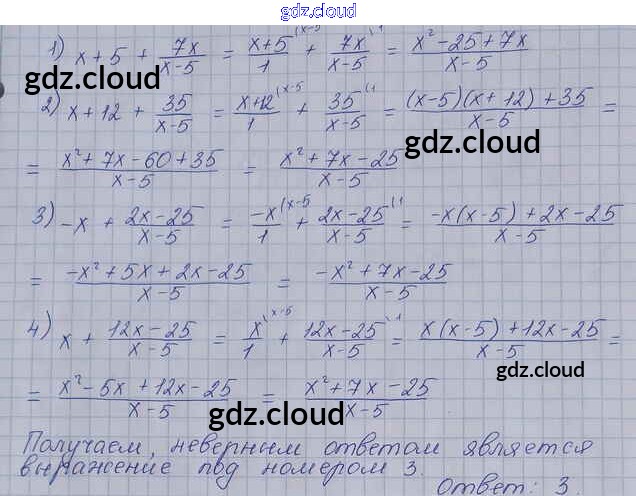 gdz.cloud
1) x+5 + 7x/(x-5) = (x+5)/1 (x-5 + 7x/(x-5) \1 = (x²-25+7x)/(x-5)
gdz.cloud
2) x+12 + 35/(x-5) = (x+12)/1 (x-5 + 35/(x-5) (1 = ((x-5)(x+12)+35)/(x-5) =
gdz.cloud
= (x²+7x-60+35)/(x-5) = (x²+7x-25)/(x-5)
gdz.cloud
3) -x + (2x-25)/(x-5) = -x/1 (x-5 + (2x-25)/(x-5) (1 = (-x(x-5)+2x-25)/(x-5)
= (-x²+5x+2x-25)/(x-5) = (-x²+7x-25)/(x-5)
gdz.cloud
4) x + (12x-25)/(x-5) = x/1 \x-5 + (12x-25)/(x-5) \1 = (x(x-5)+12x-25)/(x-5) =
gdz.cloud
= (x²-5x+12x-25)/(x-5) = (x²+7x-25)/(x-5)
gdz.cloud
Получаем, неверным ответом является
выражение под номером 3.
Ответ: 3.
gdz.cloud